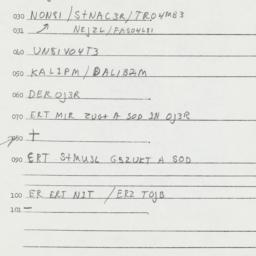 030 NONSI / StNAC3R / TRO4MB3
031 NEJZL / FASO4LSI
040 UNSIVO4T3
050 KALIPM / DALIBZM
060 DER OJ3R
070 ERT MIR ZUGT A SOD IN OJ3R
080 +
090 ERT StMUSL GSZUKT A SOD
100 ER ERT NIT / ERZ TOJB
101 –